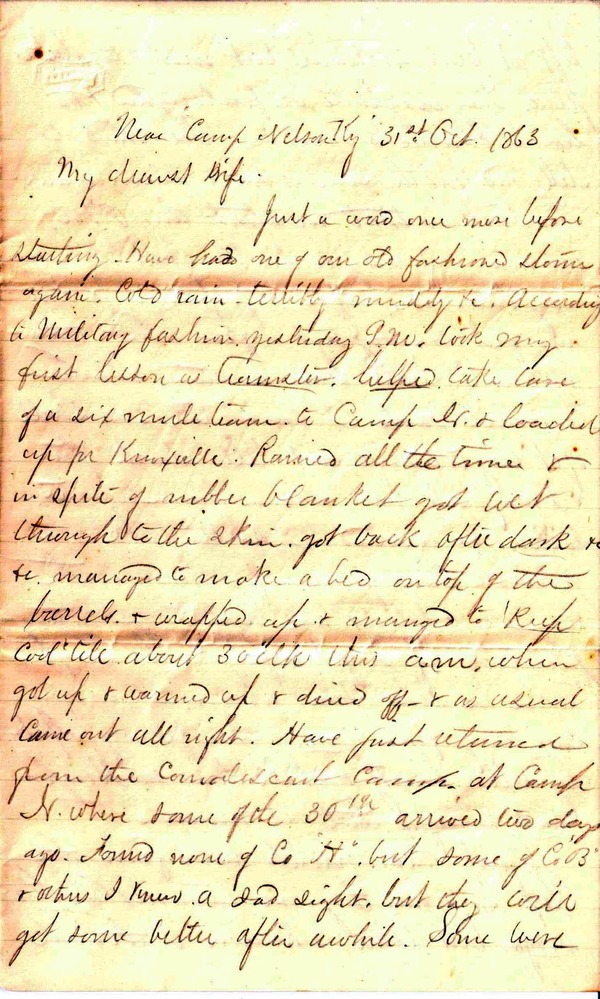 Near Camp Nelson Ky 31st Oct. 1863
My dearest Wife.
Just a word once more before
starting. Have had one of our old fashioned storms
again. Cold rain - terribly muddy &c. According
to Military fashion, yesterday P.M. took my
first lesson as teamster. helped take care
of a six mule team to Camp N. & loaded
up for Knoxville. Rained all the time &
in spite of rubber blanket got wet
through to the skin. got back after dark &
&c. managed to make a bed on top of the
barrels. & wrapped up & manged to 'Keep
Cool' till about 3 oclk this a.m. when
got up & warmed up & dried off - & as usual
Came out all right. Have just returned
from the Convalescent Camp at Camp
N. where some of the 30th arrived two days
ago. Found none of Co "H". but some of Co "B"
& others I knew. a sad sight. but they will
get some better after awhile. Some were